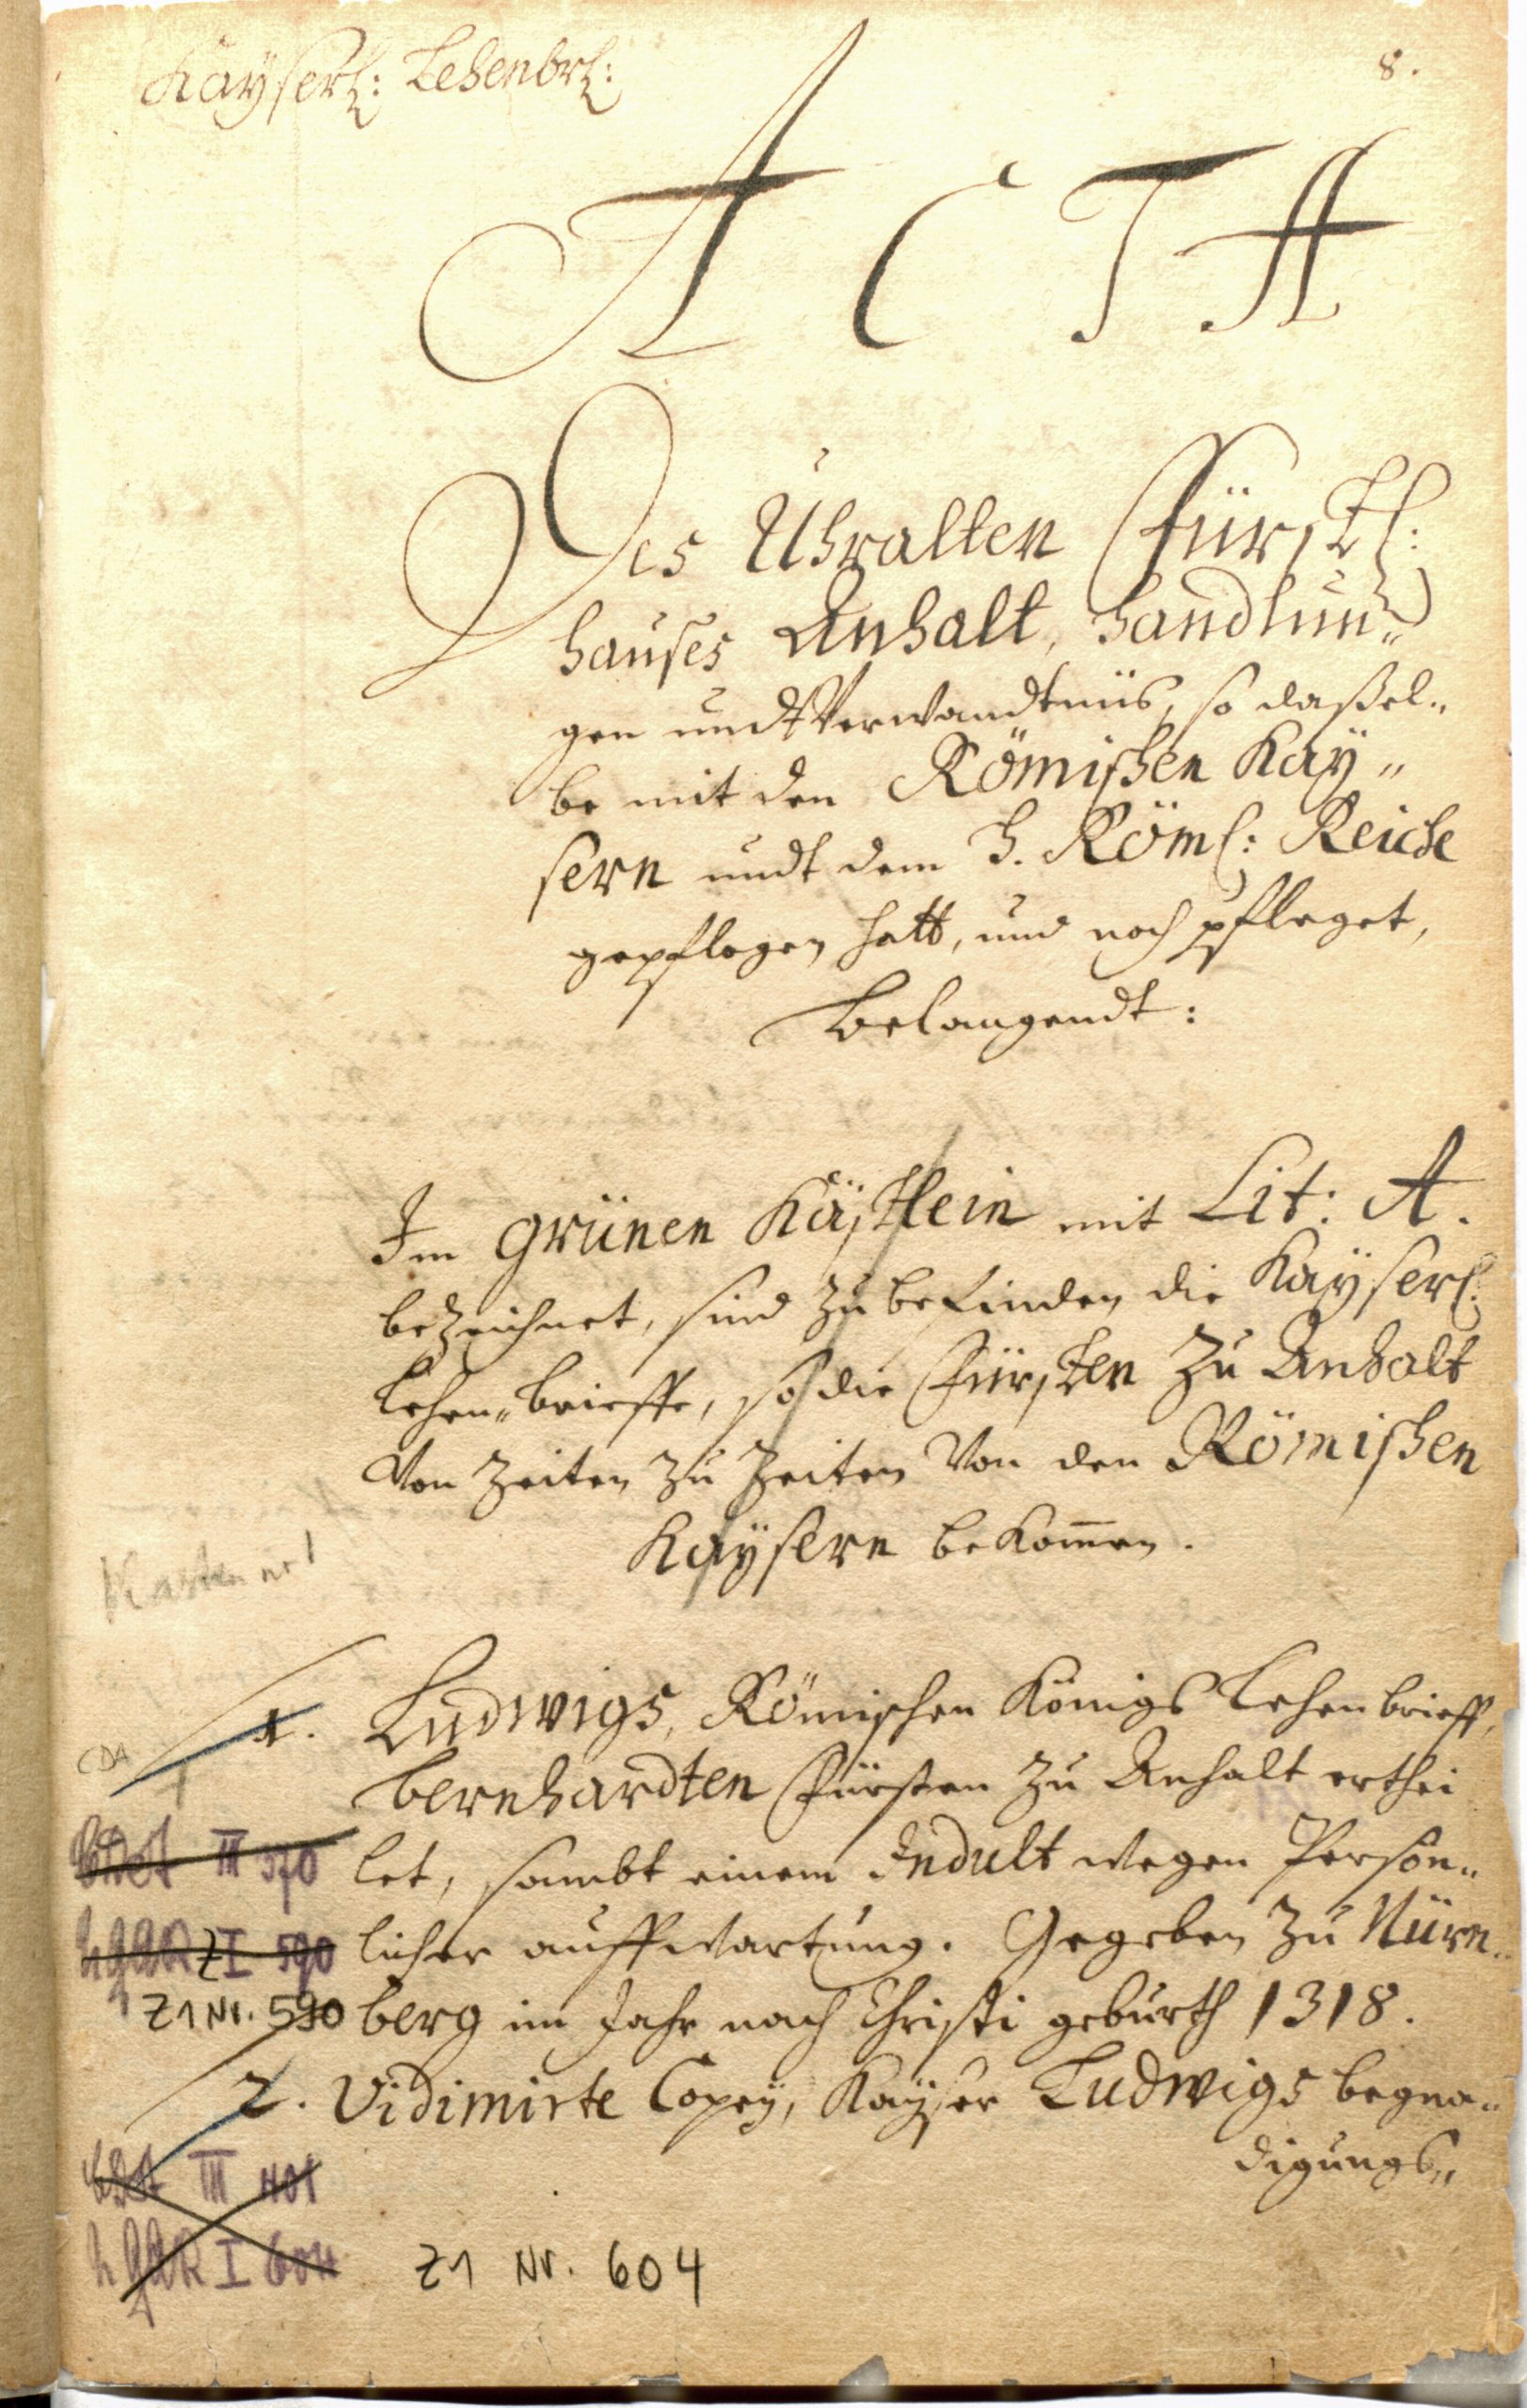 Kayserl: Lehenbrl:
8.
ACTA
Des Uhralten Fürstl:
hauses Anhalt, handlun„
gen undt Verwandtnüs, so daßel„
be mit den Römischen Kaÿ„
sern undt dem H. Röml: Reiche
gepflogen hatt, und noch pfleget,
Belangendt:
Im grünen Kästlein mit Lit: A.
bezeichnet, sind zu befinden die Kaÿserl:
Lehen„brieffe, so die Fürsten zu Anhalt
Von Zeiten zu Zeiten Von den Römischen
Kaÿsern bekom̄en.
Kasten nr 1
1. Ludwigs, Römischen Königs Lehenbrieff,
CDA
Bernhardten Fürsten zu Anhalt erthei
III 370
let, sambt einem Indult wegen Persön„
I 590
licher auffwartung. Gegeben zu Nürn„
Z1 Nr. 590
berg im Jahr nach Christi geburth 1318.
2. Vidimirte Copeÿ, Kaÿser Ludwigs begna„
digungs„
III 401
GAR I 604
Z1 Nr. 604